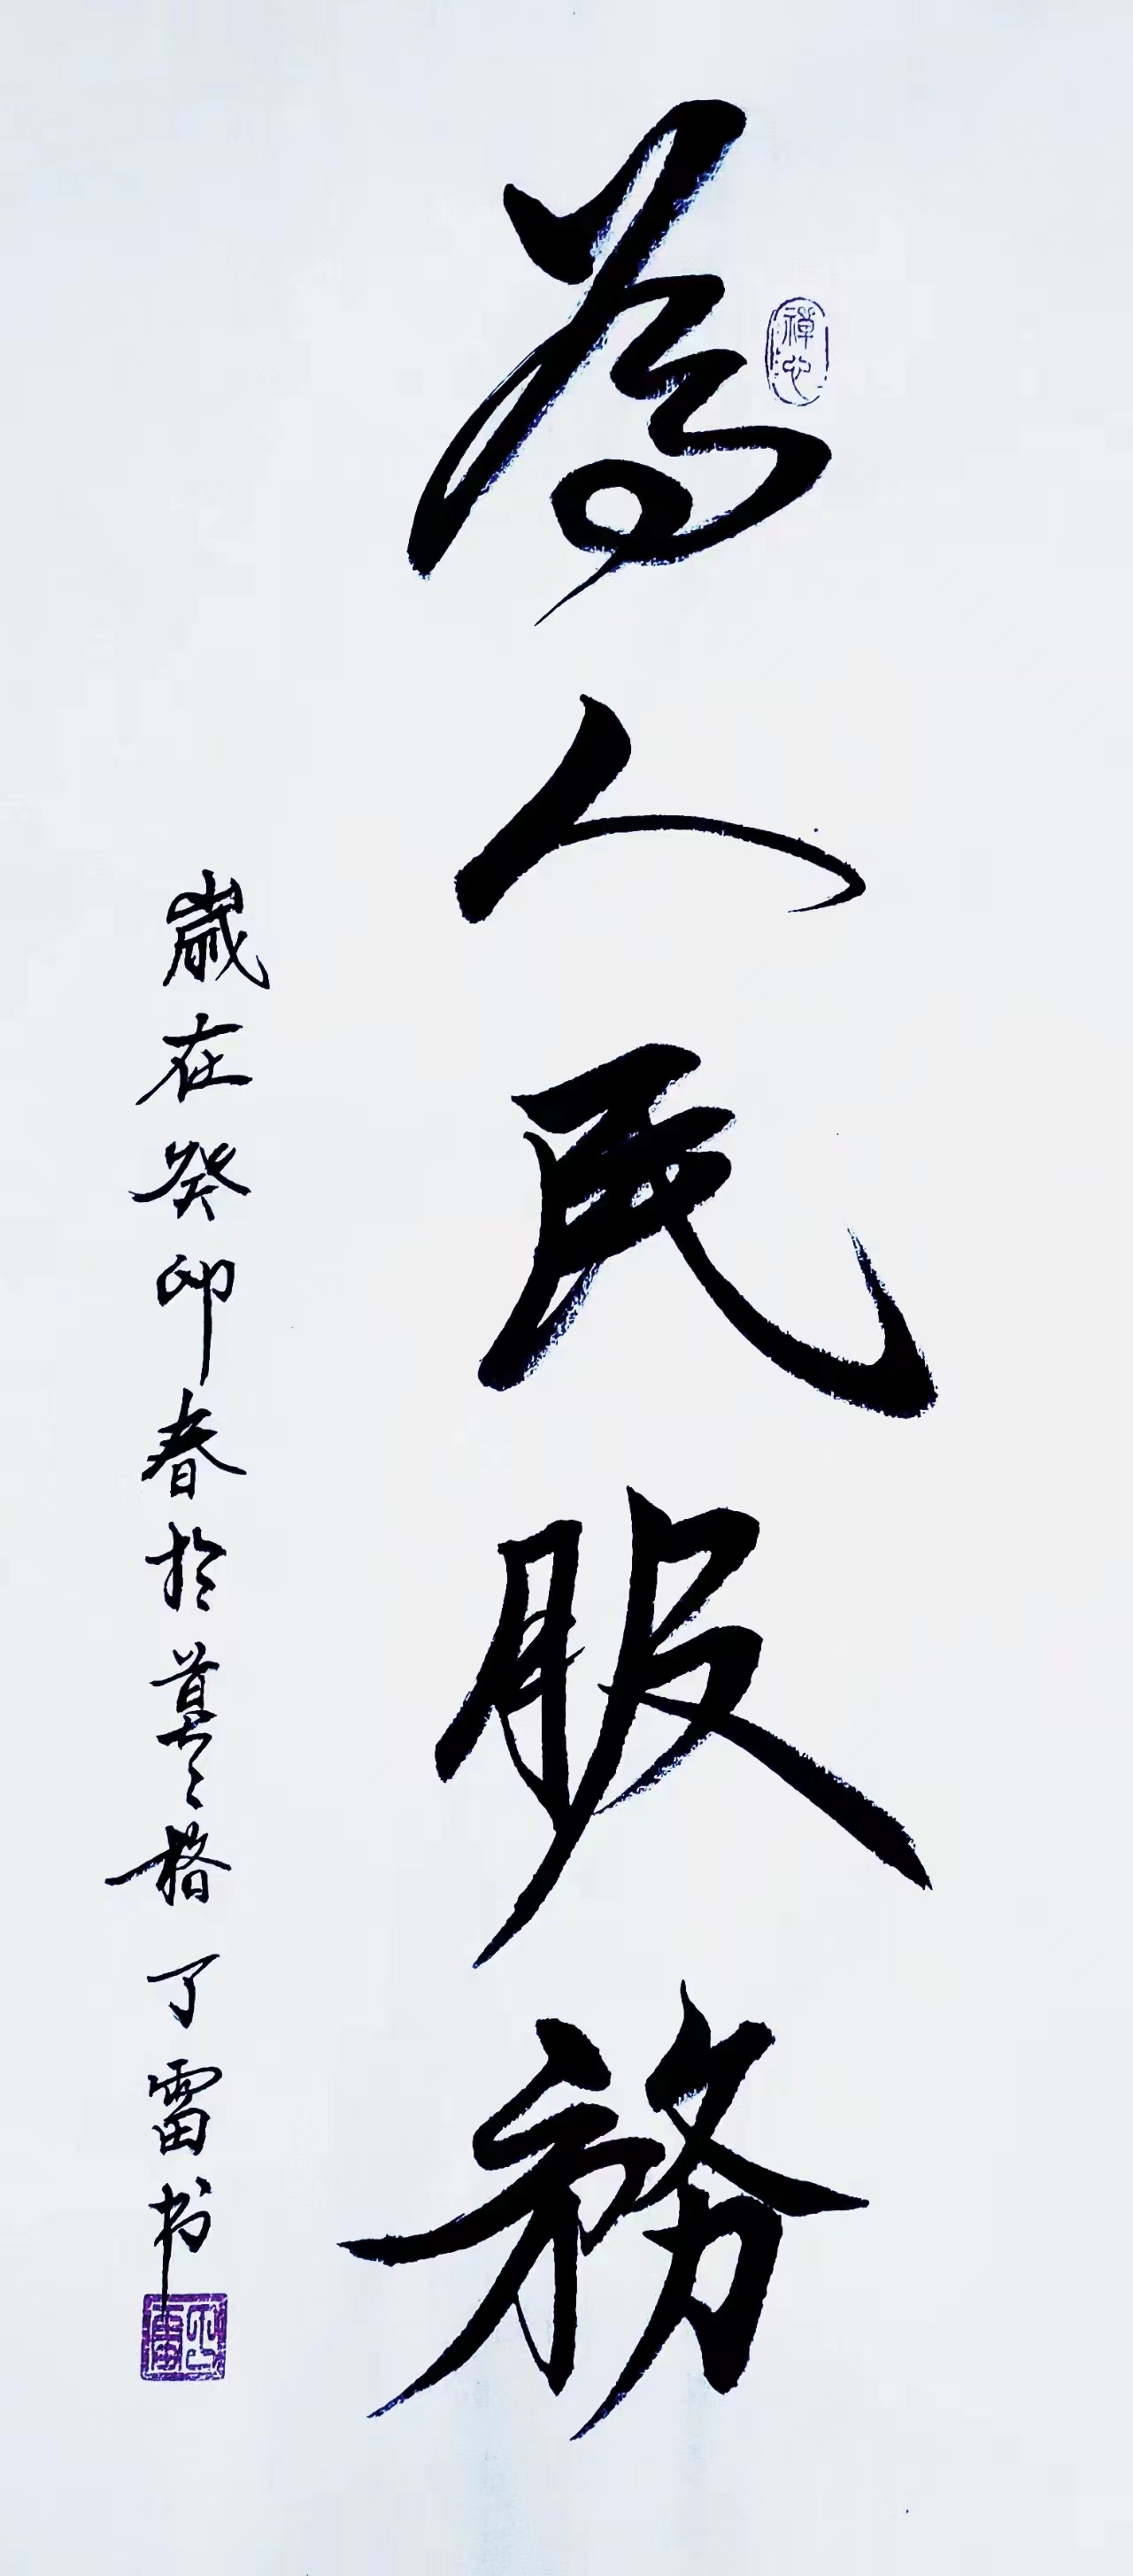 為人民服務
禅心
歲在癸卯春於莫莫格丁雷书